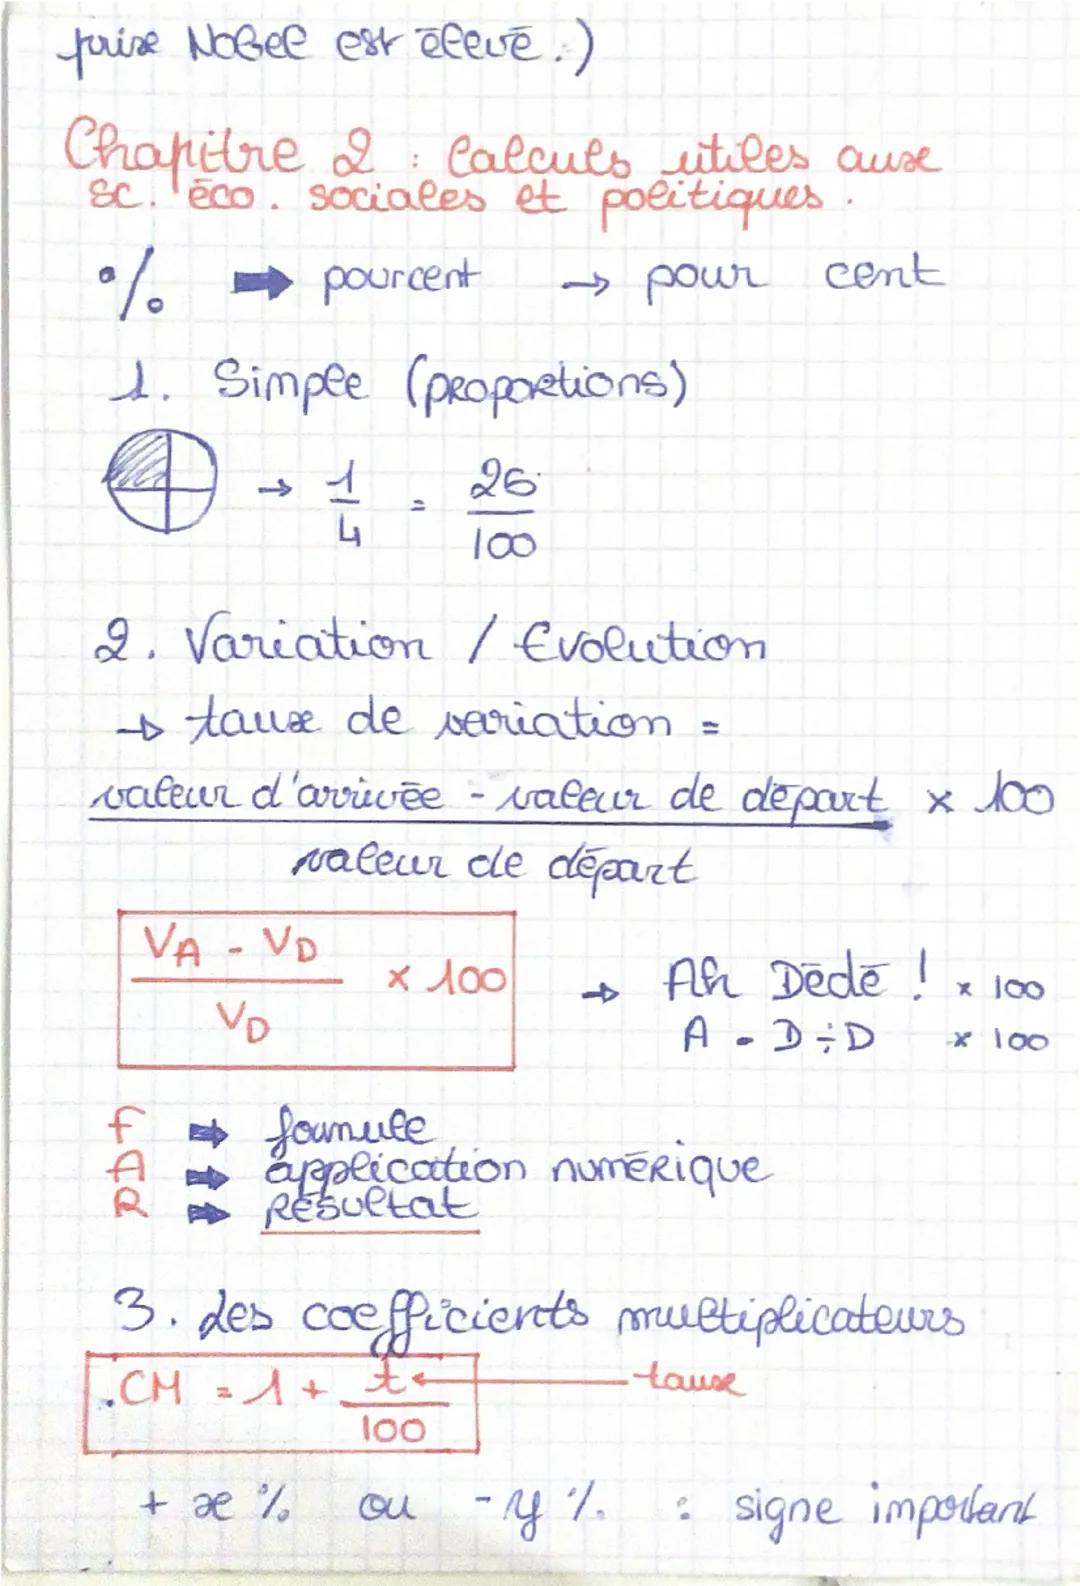 prix Nobel est élevé.)
Chapitre 2 : Calculs utiles aux
sc. éco. sociales et politiques.
% ➡ pourcent → pour cent
1. Simple (proportions)
→ 1/4 = 25/100
2. Variation / Evolution
→ taux de variation =
valeur d'arrivée - valeur de départ × 100
valeur de départ
VA - VD
× 100
VD
→ Ah Dédé ! × 100
A - D ÷ D × 100
F ➡ formule
A ➡ application numérique
R ➡ Résultat
3. Les coefficients multiplicateurs
CM = 1 + t/100 ← taux
+ x % ou - y % : signe important